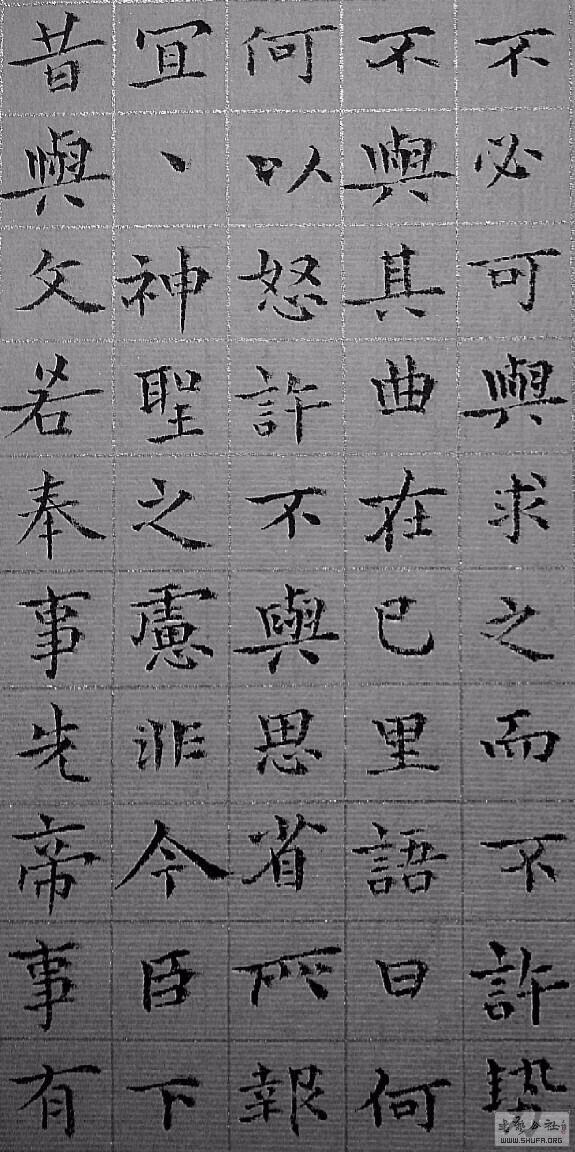 不必可與求之而不許勢
不與其曲在己里語曰何
何以怒許不與思省所報
冝、神聖之慮非今臣下
昔與文若奉事先帝事有
WWW.SHUFA.ORG